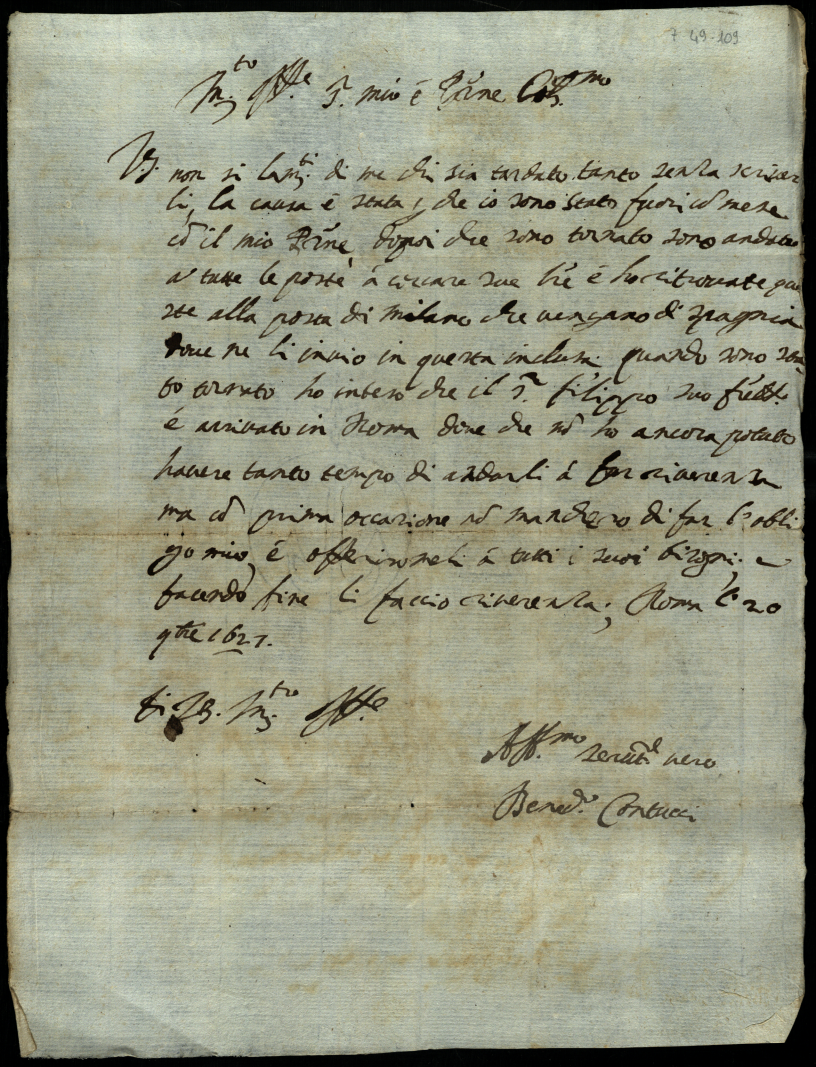 7 49-109
Mto Ille Sr mio é Prne Colmo
VS. non si lamti di me chi sia tardato tanto senza scriver
li, la causa é stata, che io sono stato fuori cō mene
cō il mio Prne, dopoi che sono tornato sono andato
a' tutte le poste á cercare sue lre é ho ritrovate que
ste alla posta di milano che vengano di spagnia
dove ne li invio in questa inclusa. quando sono sta
to tornato ho inteso che il Sr filippo suo fratello
é arrivato in Roma dove che nō ho ancora potuto
havere tanto tempo di andarli á far riverenza
ma cō prima occasione nō manchero di far l'obli
go mio, é offerironeli á tutti i suoi bisogni, e
facendo fine li faccio riverenza; Roma li 20
9bre 1627.
Di VS. Mto Ille
Affmo servitre vero
Bened.o Contucci